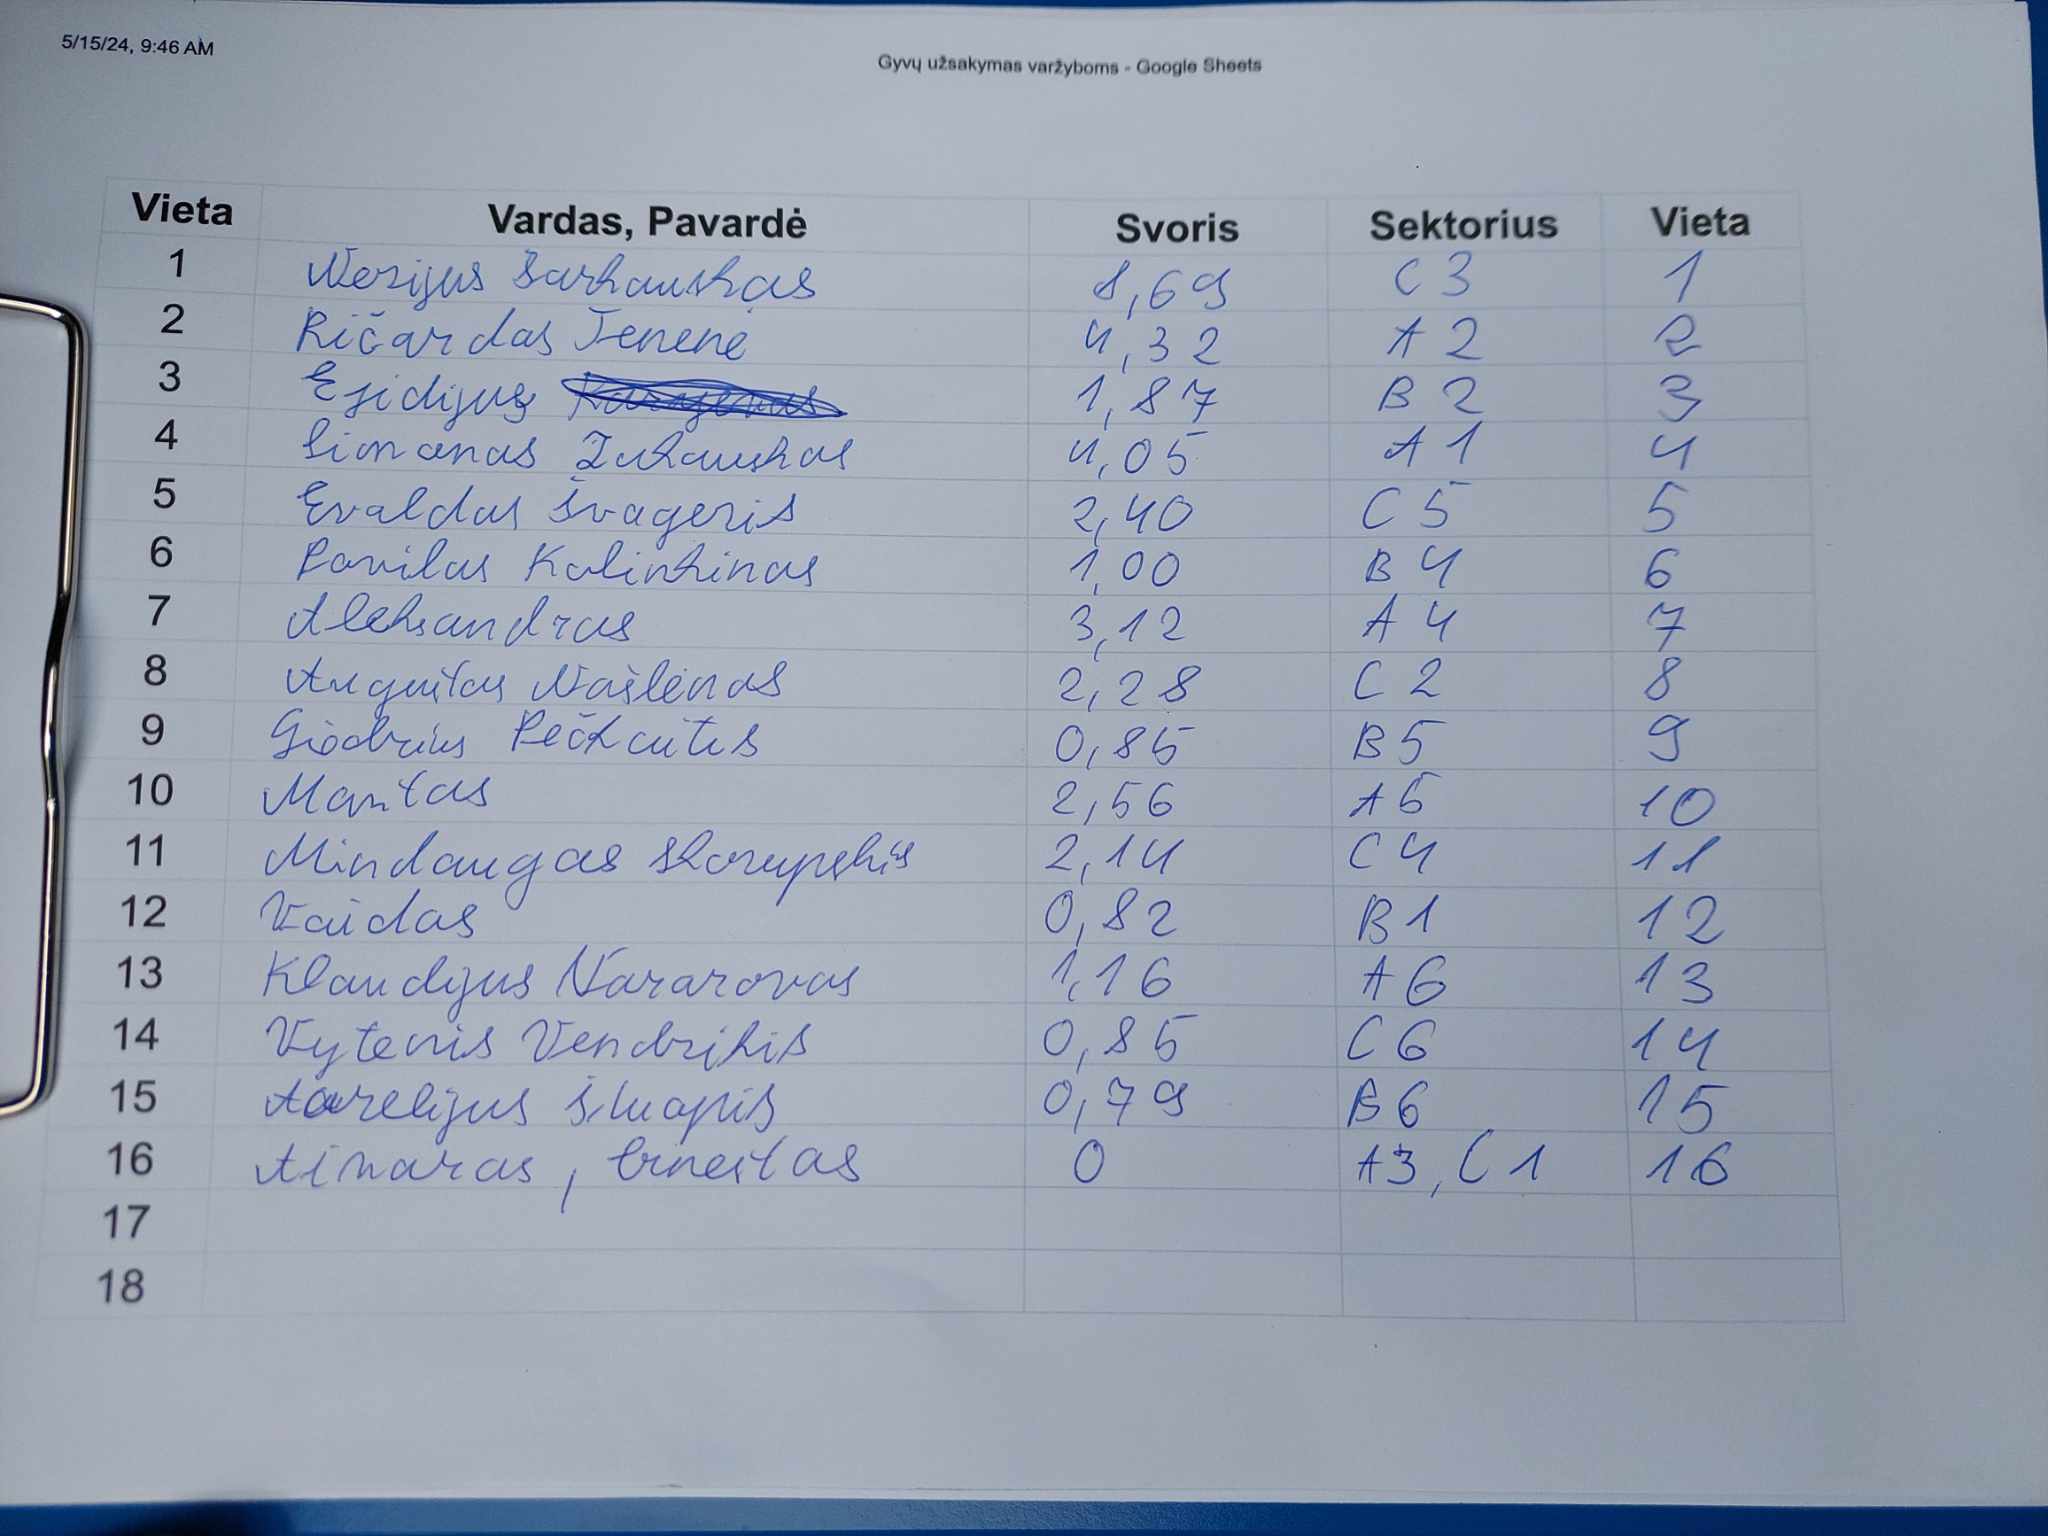 5/15/24, 9:46 AM
Gyvų užsakymas varžyboms - Google Sheets
Vieta Vardas, Pavardė Svoris Sektorius Vieta
1 Nerijus Šarkauskas 8,69 C3 1
2 Ričardas Tenenė 4,32 A2 2
3 Egidijus 1,87 B2 3
4 Simonas Zukauskas 4,05 A1 4
5 Evaldas Švageris 2,40 C5 5
6 Povilas Kalinkinas 1,00 B4 6
7 Aleksandras 3,12 A4 7
8 Augustas Našlėnas 2,28 C2 8
9 Giedrius Pečkaitis 0,85 B5 9
10 Mantas 2,56 A5 10
11 Mindaugas Skorupskis 2,14 C4 11
12 Vaidas 0,82 B1 12
13 Klaudijus Nazarovas 1,16 A6 13
14 Vytenis Vendzikis 0,85 C6 14
15 Aurelijus Šluopis 0,79 B6 15
16 Aimaras, Ernestas 0 A3, C1 16
17
18